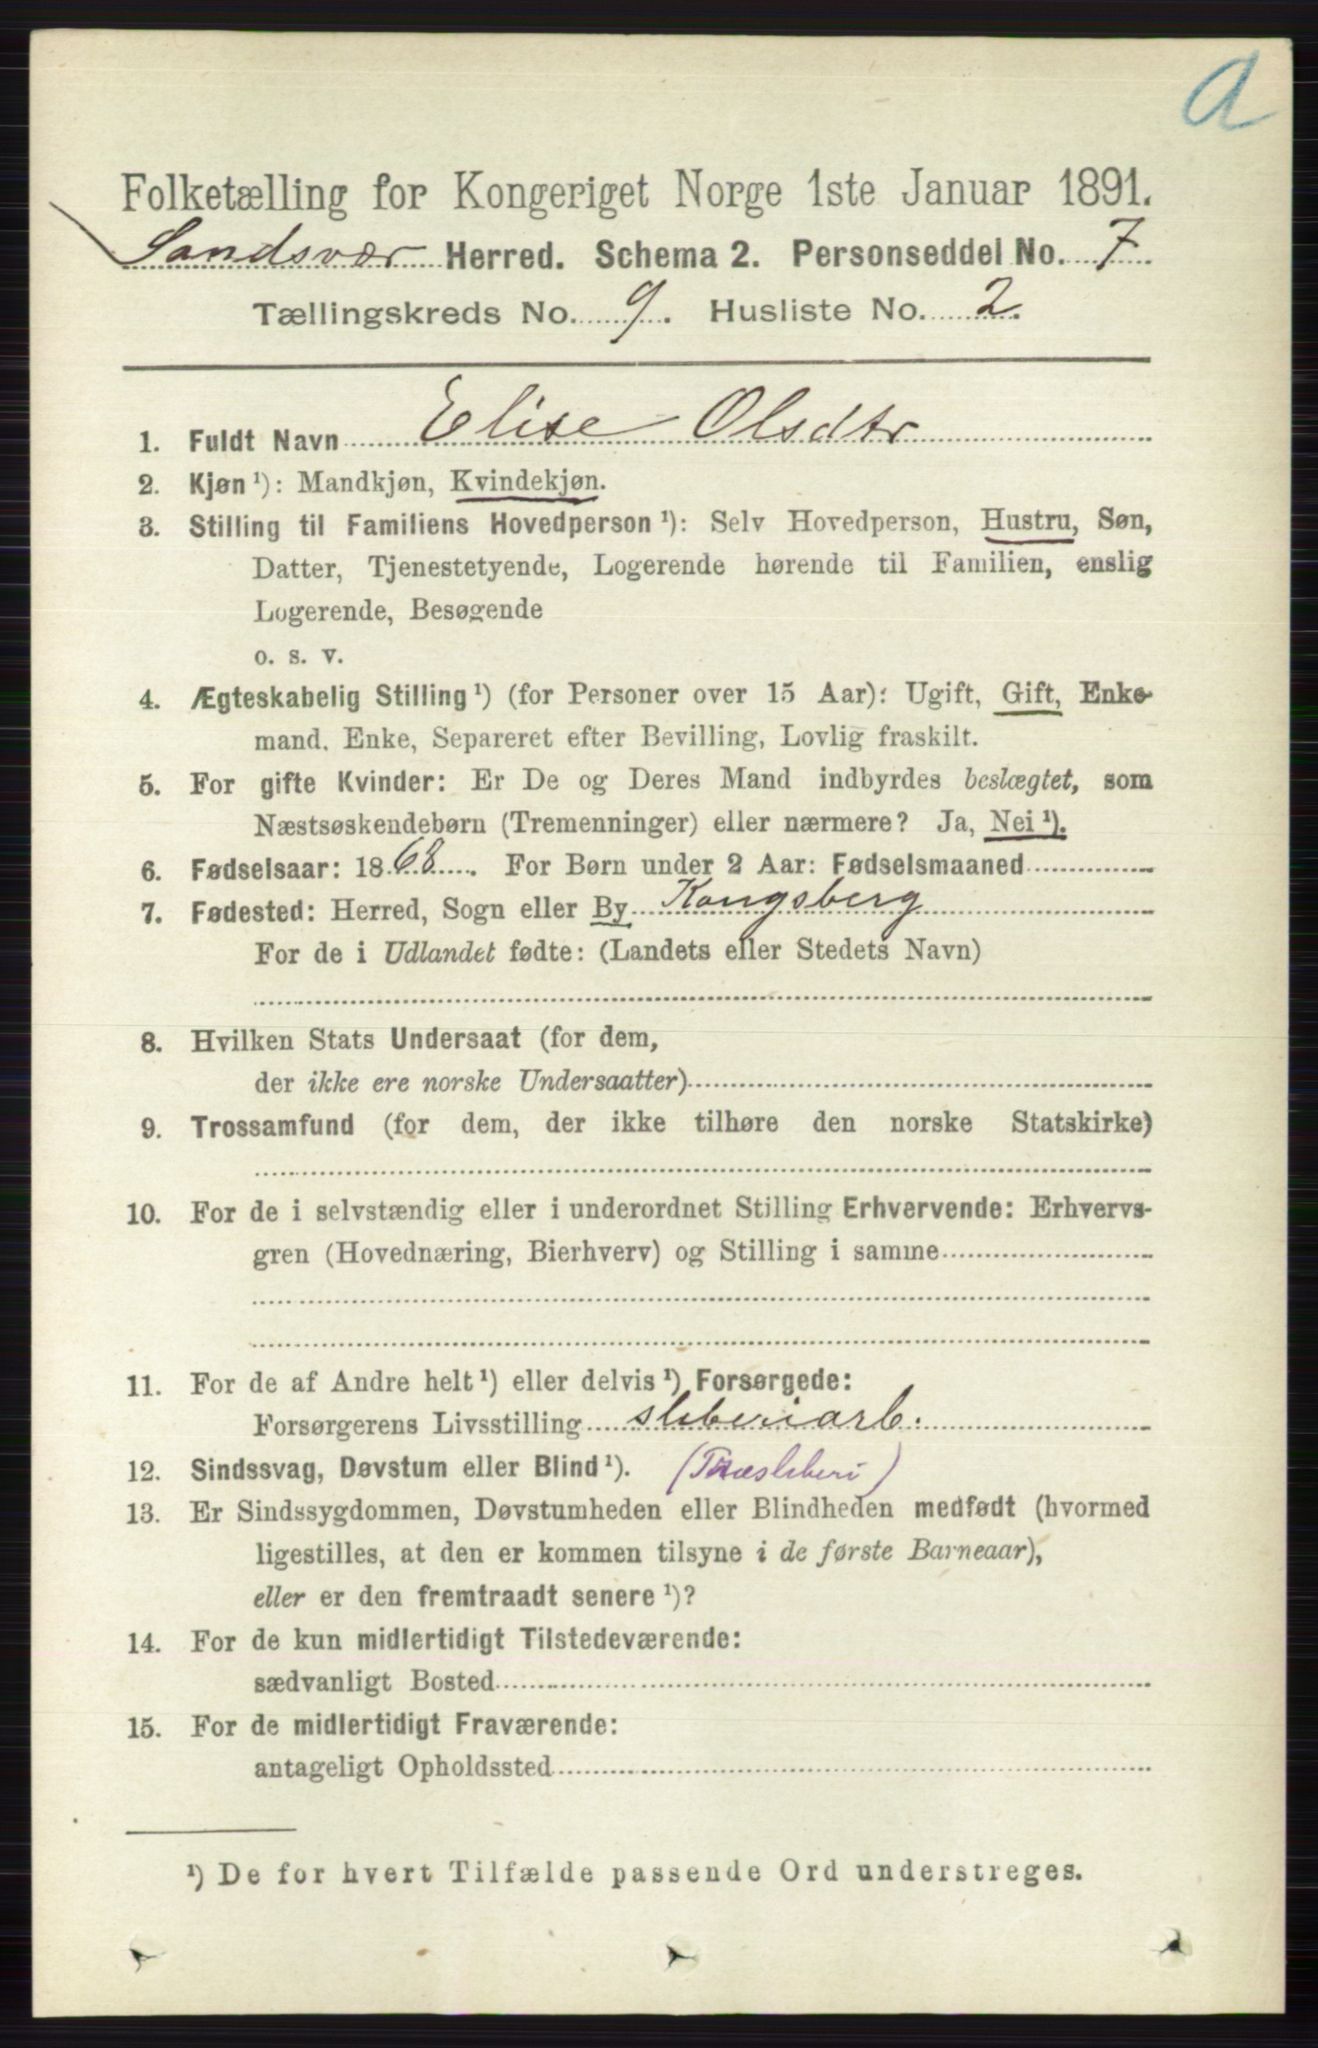 a
Folketælling for Kongeriget Norge 1ste Januar 1891.
Sandsvær Herred. Schema 2. Personseddel No. 7
Tællingskreds No. 9. Husliste No. 2.
1. Fuldt Navn Elise Olsdtr
2. Kjøn ¹): Mandkjøn, Kvindekjøn.
3. Stilling til Familiens Hovedperson ¹): Selv Hovedperson, Hustru, Søn,
Datter, Tjenestetyende, Logerende hørende til Familien, enslig
Logerende, Besøgende
o. s. v.
4. Ægteskabelig Stilling ¹) (for Personer over 15 Aar): Ugift, Gift, Enke-
mand, Enke, Separeret efter Bevilling, Lovlig fraskilt.
5. For gifte Kvinder: Er De og Deres Mand indbyrdes beslægtet, som
Næstsøskendebørn (Tremenninger) eller nærmere? Ja, Nei ¹).
6. Fødselsaar: 1868. For Børn under 2 Aar: Fødselsmaaned
7. Fødested: Herred, Sogn eller By Kongsberg
For de i Udlandet fødte: (Landets eller Stedets Navn)
8. Hvilken Stats Undersaat (for dem,
der ikke ere norske Undersaatter)
9. Trossamfund (for dem, der ikke tilhøre den norske Statskirke)
10. For de i selvstændig eller i underordnet Stilling Erhvervende: Erhvervs-
gren (Hovednæring, Bierhverv) og Stilling i samme
11. For de af Andre helt ¹) eller delvis ¹) Forsørgede:
Forsørgerens Livsstilling sliberiarb.
12. Sindssvag, Døvstum eller Blind ¹). (Træsliberi)
13. Er Sindssygdommen, Døvstumheden eller Blindheden medfødt (hvormed
ligestilles, at den er kommen tilsyne i de første Barneaar),
eller er den fremtraadt senere ¹)?
14. For de kun midlertidigt Tilstedeværende:
sædvanligt Bosted
15. For de midlertidigt Fraværende:
antageligt Opholdssted
¹) De for hvert Tilfælde passende Ord understreges.